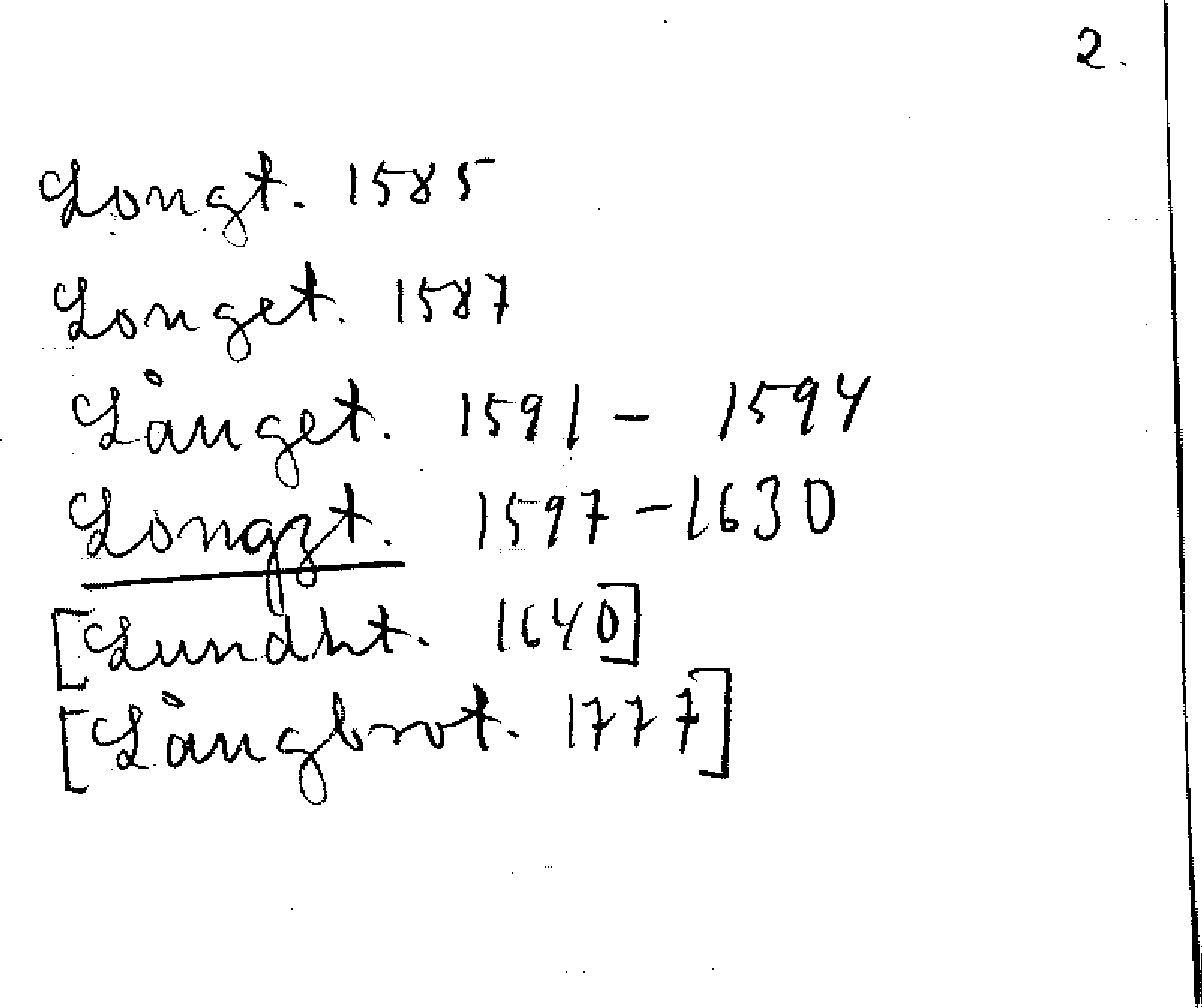 2.
Longt. 1585
Longet. 1587
Långet. 1591 - 1594
Longzt. 1597 - 1630
[Lundht. 1640]
[Långbrot. 1777]